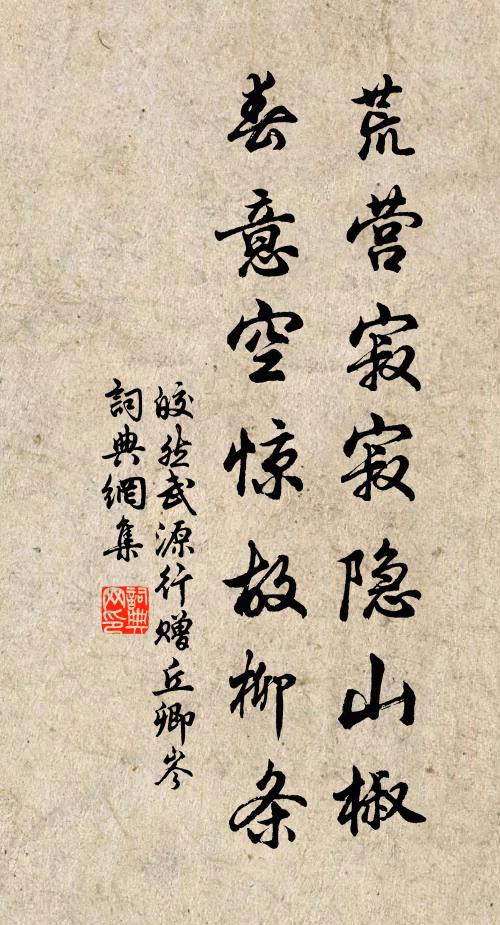 荒营寂寂隐山椒
春意空惊故柳条
皎然武源行赠丘卿岑
词典網集
詞典网印